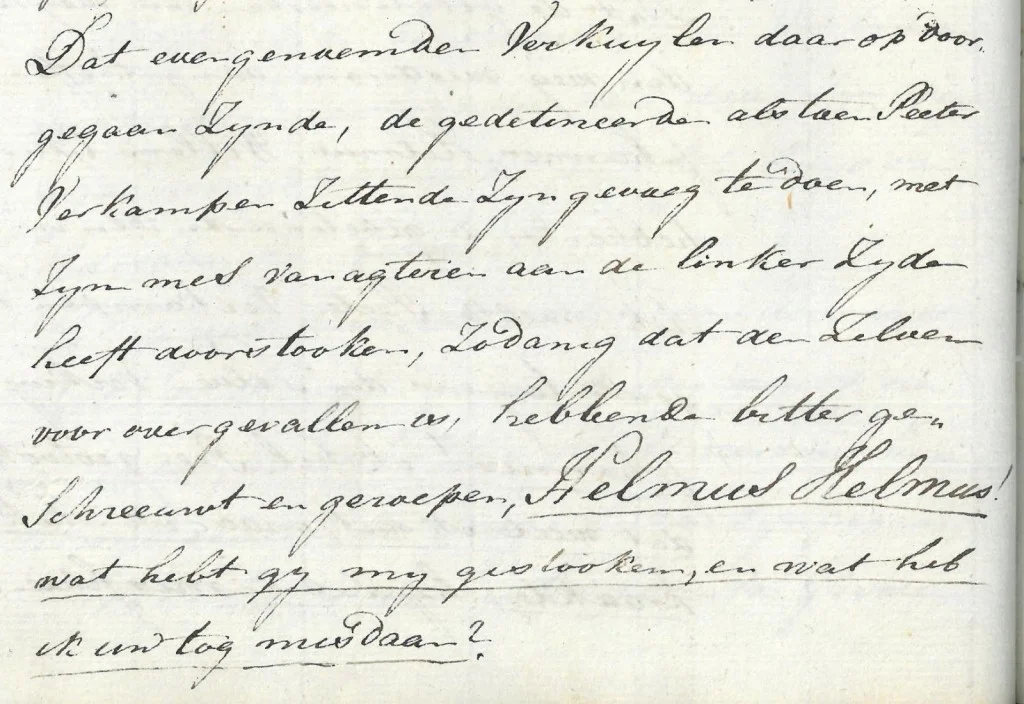 Dat evengenoemden Verkuylen daar op door-
gegaan Zynde, de gedetineerde als toen Peeter
Verkampen Zittende Zyn gevoeg te doen, met
Zyn mes van agteren aan de linker Zyde
heeft doorstooken, Zodanig dat den Zelven
voor over gevallen is, hebbende bitter ge„
Schreeuwt en geroepen, Helmus Helmus!
wat hebt gy my gestooken, en wat heb
ik uw tog misdaan?